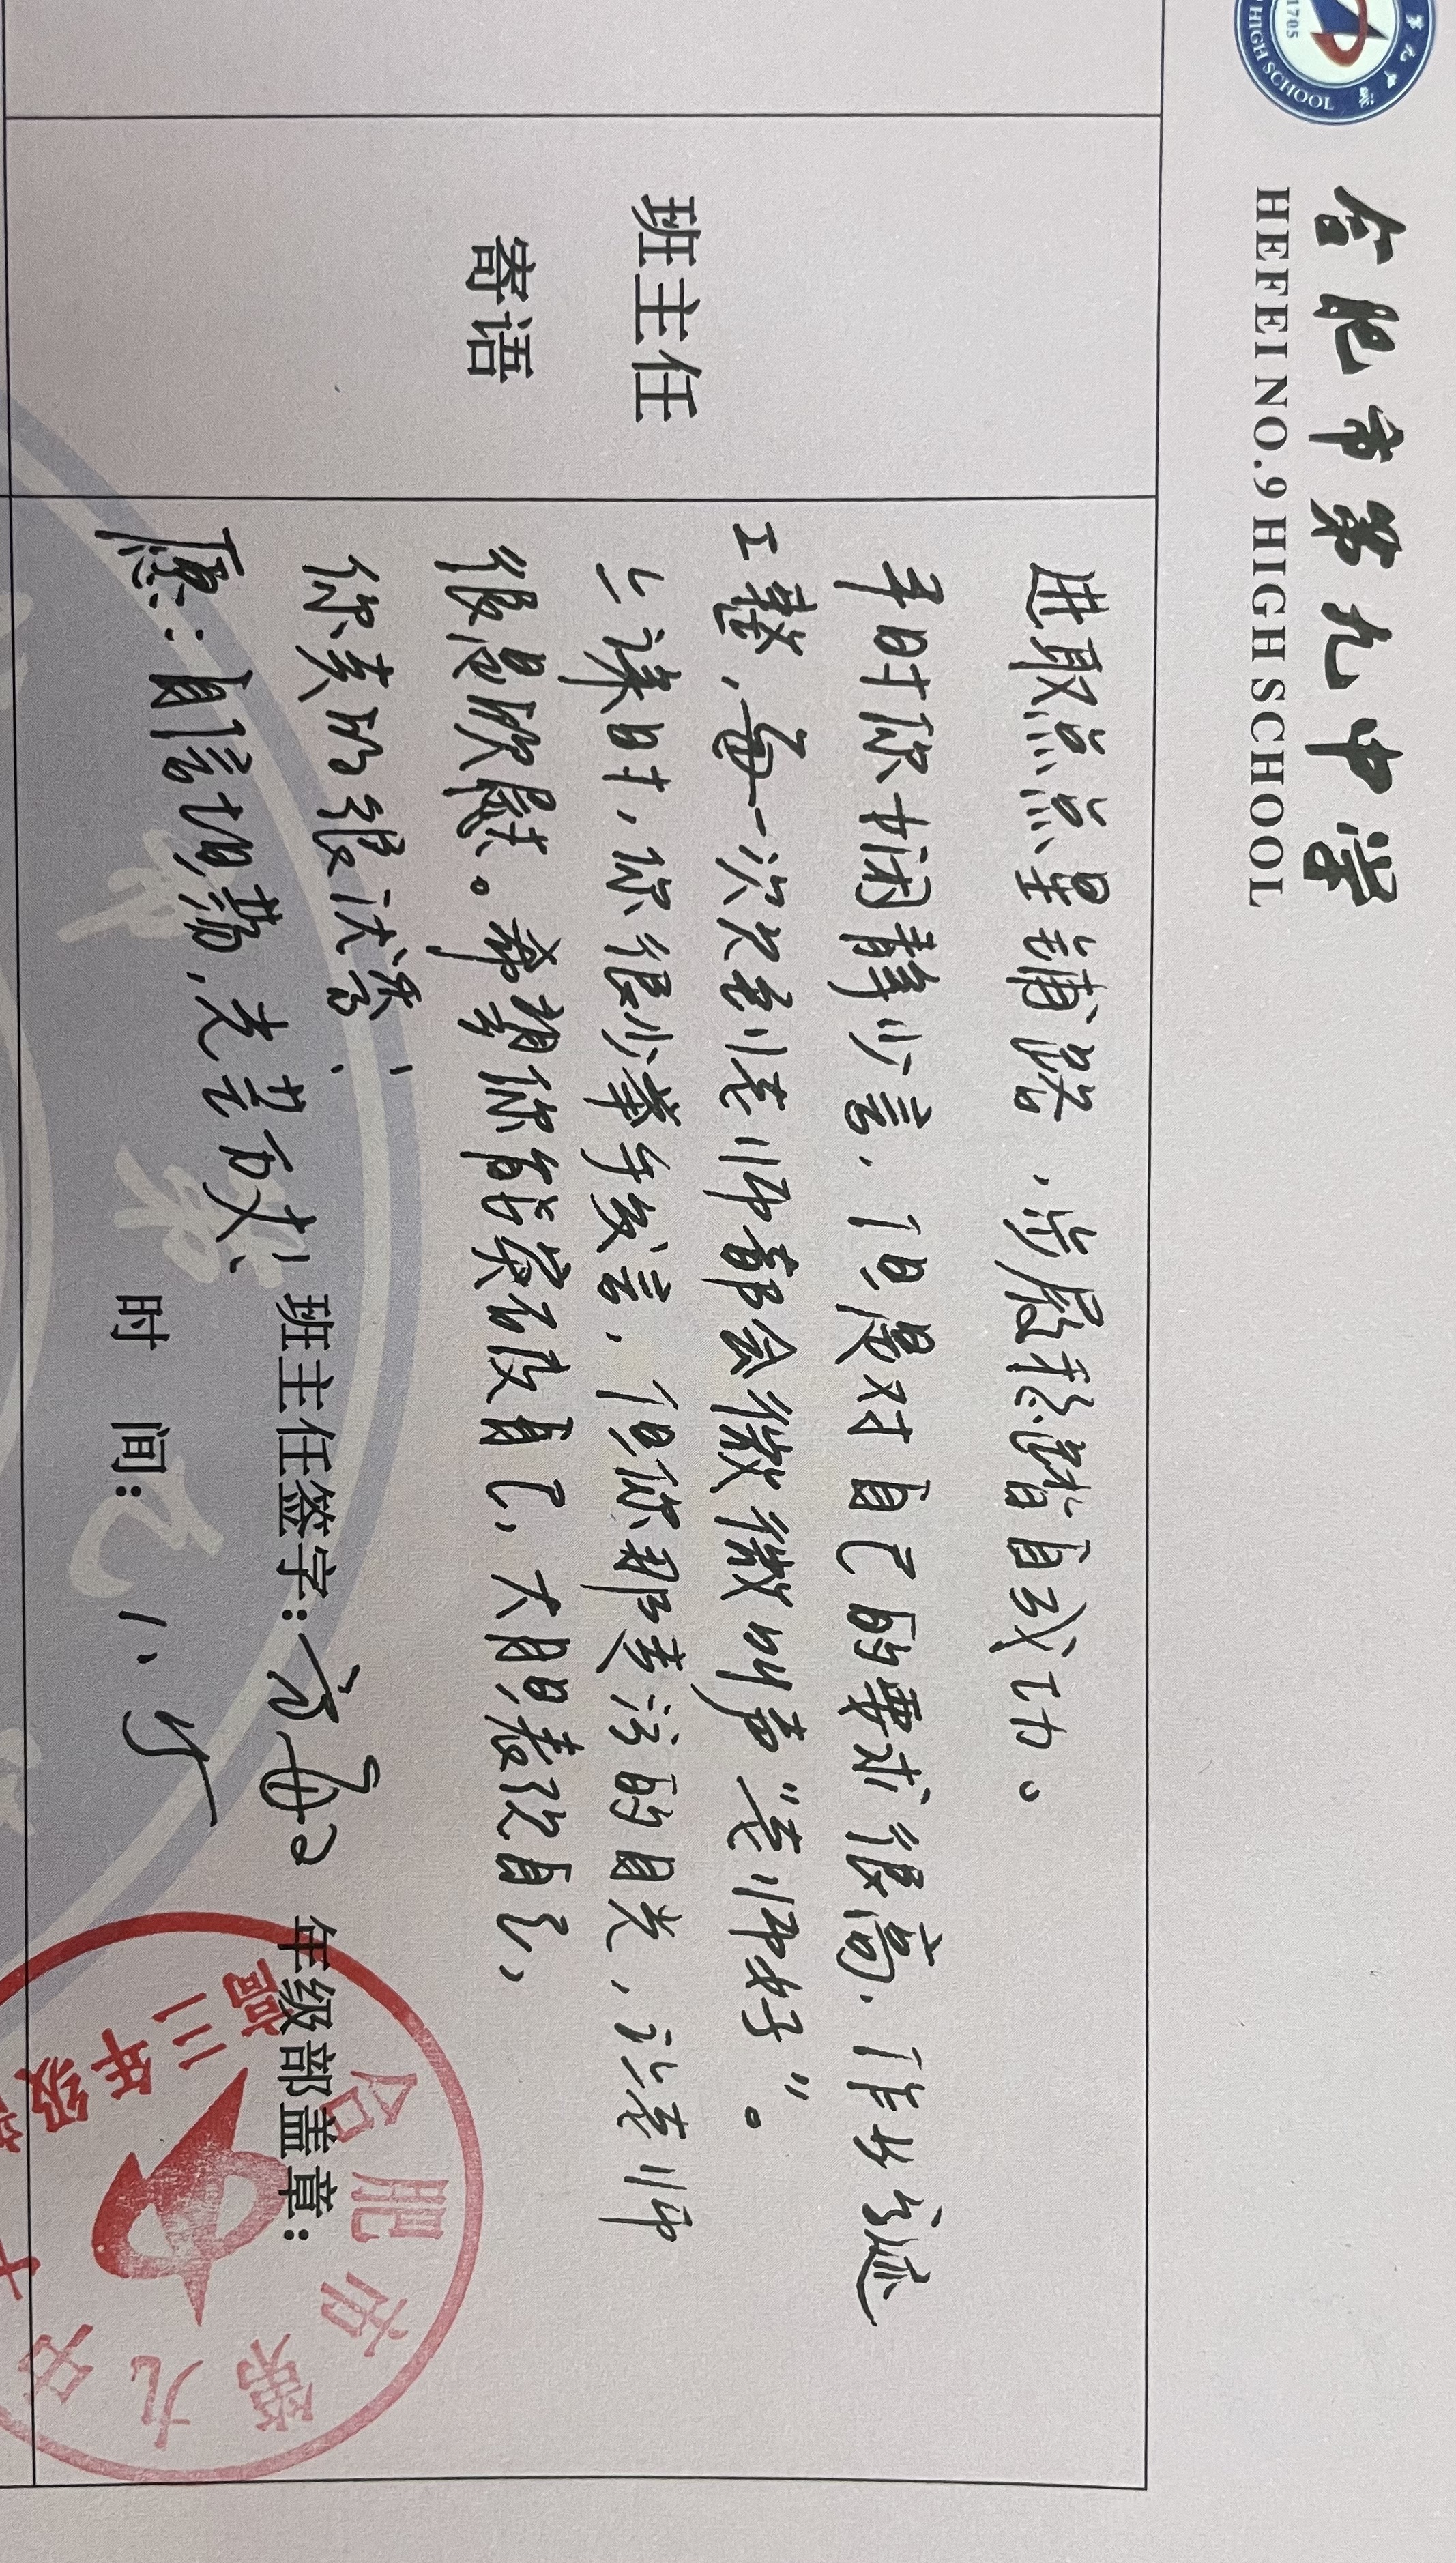 1705
HIGH SCHOOL
合肥市第九中学
HEFEI NO.9 HIGH SCHOOL
班主任
寄语
进取点点星铺路，步履轻踏自成功。
平时你娴静少言，但是对自己的要求很高，作业字迹
工整，每一次见到老师都会微微叫声“老师好”。
上课时，你很少举手发言，但你那专注的目光，让老师
很是欣慰。希望你能突破自己，大胆表现自己，
你真的很优秀
愿：自信坦荡，光芒万丈
班主任签字：
年级部盖章：
时 间：1、
合肥市第九中
高三年级